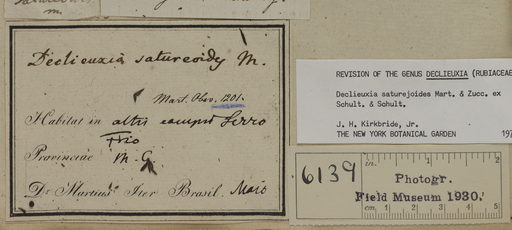 m.
Declieuxia satureoides M.
Mart. Obser. 1201.
Habitat in altis campis Serro
Frio
Provinciae M. G.
Dr. Martius Iter Brasil. Maio
REVISION OF THE GENUS DECLIEUXIA (RUBIACEAE
Declieuxia saturejoides Mart. & Zucc. ex
Schult. & Schult.
J. H. Kirkbride, Jr.
THE NEW YORK BOTANICAL GARDEN 197
6139
in. 1 2
Photogr.
Field Museum 1930.
cm. 1 2 3 4 5